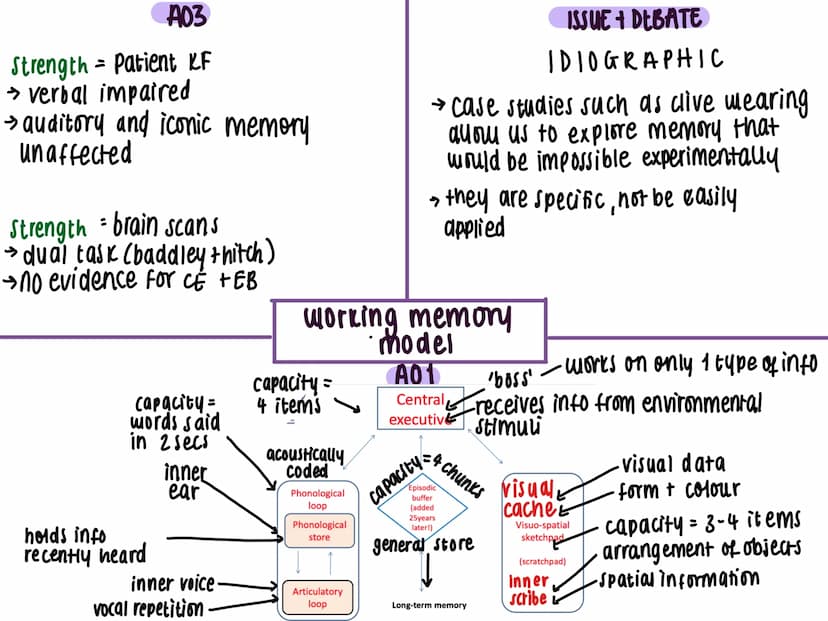 AO3
Strength = Patient KF
→ verbal impaired
→ auditory and iconic memory
unaffected
Strength = brain scans
→ dual task (baddley + hitch)
→ no evidence for CE + EB
ISSUE + DEBATE
IDIOGRAPHIC
→ case studies such as clive wearing
allow us to explore memory that
would be impossible experimentally
→ they are specific, not be easily
applied
working memory
model
AO1
capacity =
4 items
Central
executive
'boss'
works on only 1 type of info
receives info from environmental
stimuli
capacity =
words said
in 2 secs
inner
ear
holds info
recently heard
inner voice
vocal repetition
acoustically
coded
Phonological
loop
Phonological
store
Articulatory
loop
capacity = 4 chunks
Episodic
buffer
(added
25years
later!)
general store
Long-term memory
visual
cache
Visuo-spatial
sketchpad
(scratchpad)
inner
scribe
visual data
form + colour
capacity = 3-4 items
arrangement of objects
spatial information